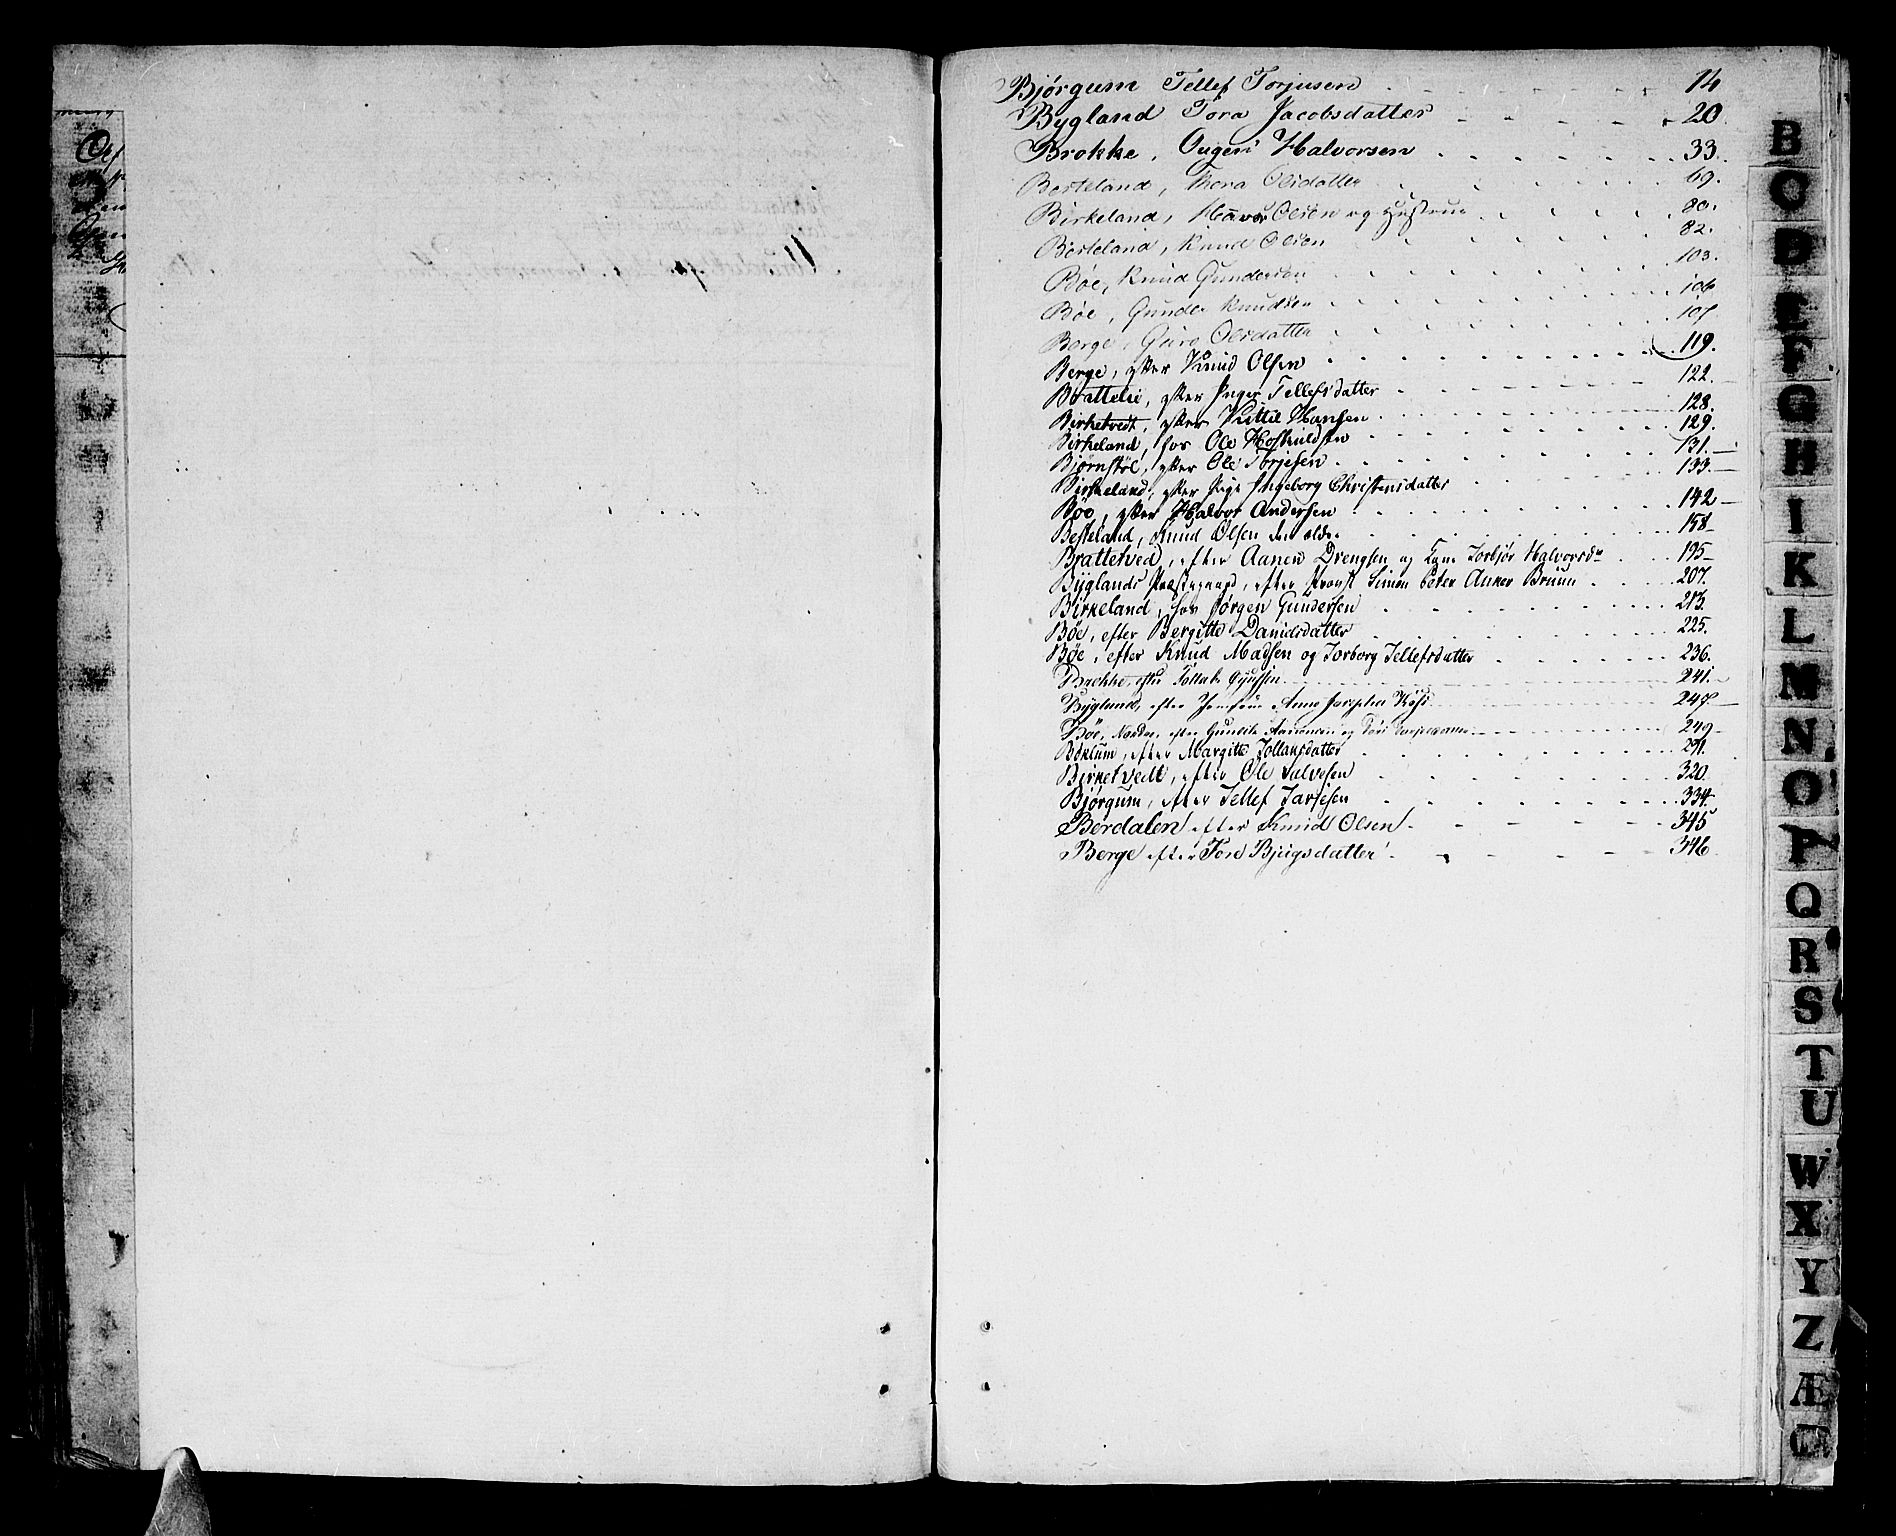 Bjørgum Tellef Torjusen 14
Bygland Tora Jacobsdatter 20
Brokke, Ougen Halvorsen 33
Besteland, Thora Olsdatter 69.
Birkeland, Haavor Olsen og Hustrue 80.
Besteland, Knud Olsen 82.
Bøe, Knud Gundersen 103.
Bøe, Gunder Knudsen 106
Berge, Guro Olsdatter 107
Berge, efter Knud Olsen 119.
Brattelie, efter Inger Tellefsdatter 122.
Birketvedt, efter Kittil Hansen 128.
Birkeland, for Ole Hoskuldsen 129.
Bjørnstøl, efter Ole Torjesen 131.
Birkeland, efter Pige Ingeborg Christensdatter 133.
Bøe, efter Halvor Andersen 142
Besteland, Knud Olsen den ældr. 158
Brattetved, efter Aanen Drengsen og Torbjør Halvorsdr 195
Byglands Præstegaard, efter Provst Simon Peter Anker Bruun 207.
Birkeland, for Jørgen Gundersen 213.
Bøe, efter Bergitte Danielsdatter 225.
Bøe, efter Knud Madsen og Torborg Tellefsdatter 236.
Brække, efter Tollak 241.
Bygland, efter Jomfrue Anne 247
Bøe, Nordre, efter Gunvik Aanonsen og 249
Boklum, efter Margitte Tollefsdatter 291.
Birketvedt, efter Ole Salvesen 320.
Bjørgum, efter Tellef Tarjesen 334.
Berdalen efter Knud Olsen 345
Berge efter Tore Bjugsdatter 346
B
C
D
E
F
G
H
I
K
L
M
N
O
P
Q
R
S
T
U
W
X
Y
Z
Æ
Ø